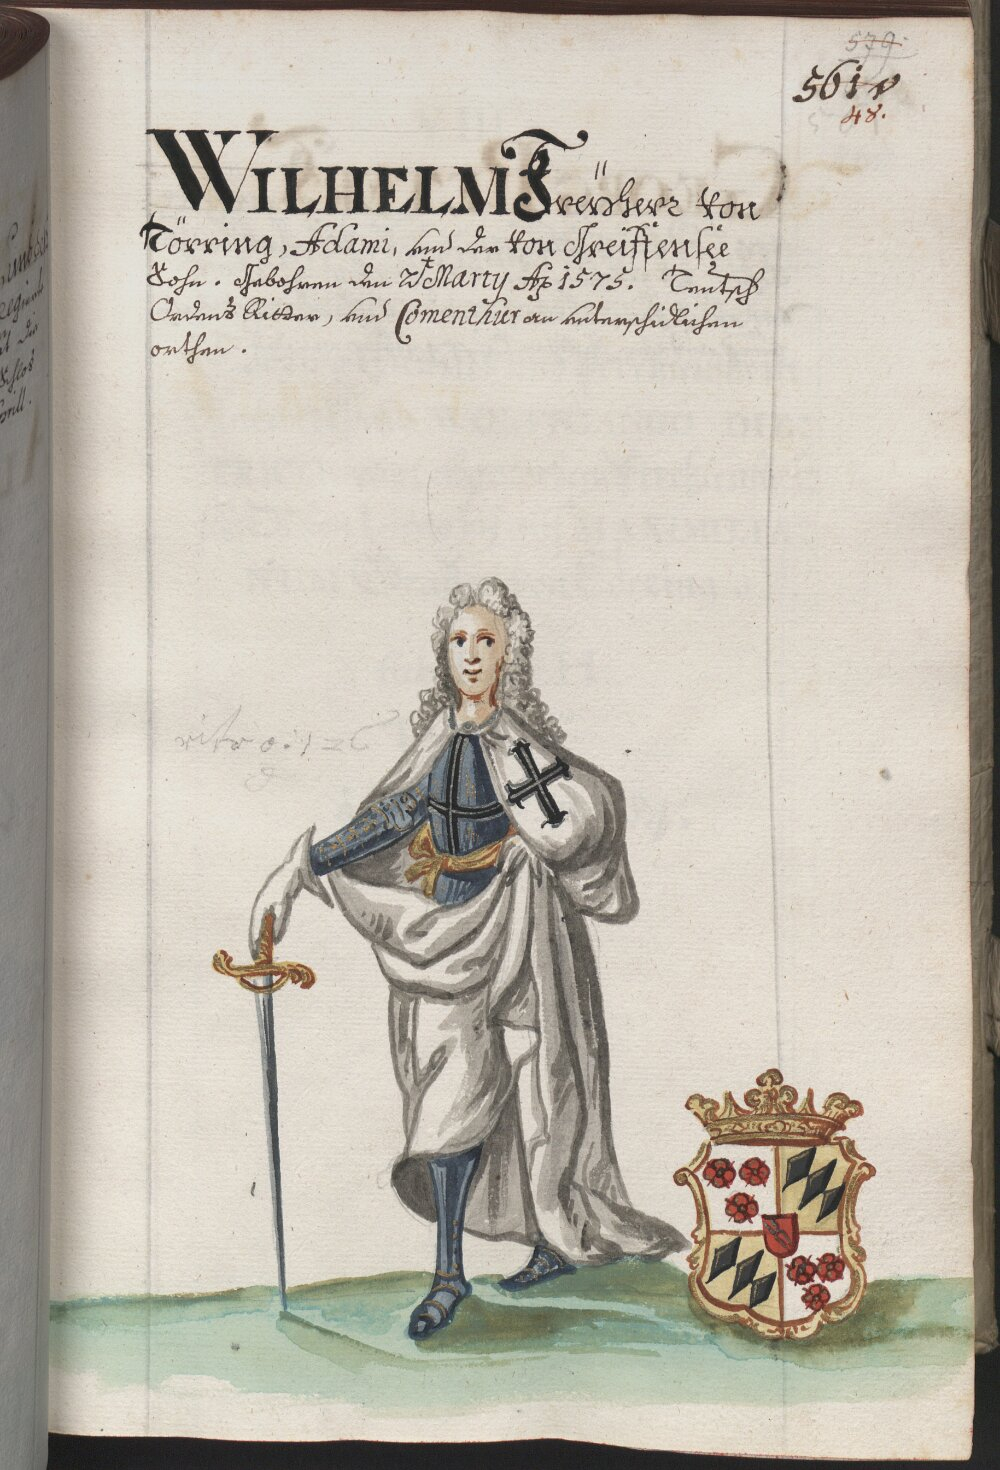 579
561
48.
WILHELM Freÿherr von
Törring, Adami, und der von Greiffensee
Sohn. Gebohren den Marty Ao 1575. Teutsch
Ordens Ritter, und Comenthur an unterschidlichen
orthen.